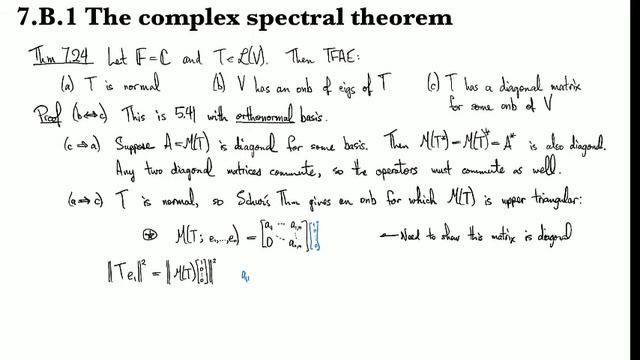 7.B.1 The complex spectral theorem
Thm 7.24 Let 𝔽=ℂ and T∈ℒ(V). Then TFAE:
(a) T is normal (b) V has an onb of eigs of T (c) T has a diagonal matrix
for some onb of V
Proof (b⇔c) This is 5.41 with orthonormal basis.
(c⇒a) Suppose A=M(T) is diagonal for some basis. Then M(T*)=M(T)*=A* is also diagonal.
Any two diagonal matrices commute, so the operators must commute as well.
(a⇒c) T is normal, so Schur's Thm gives an onb for which M(T) is upper triangular:
⊛ M(T; e₁,...,eₙ) = [a₁,₁ ⋯ a₁,ₙ; 0 ⋱ aₙ,ₙ] [1; 0; ⋮; 0] ← Need to show this matrix is diagonal
‖Te₁‖² = ‖M(T)[1; 0; ⋮; 0]‖² a₁,